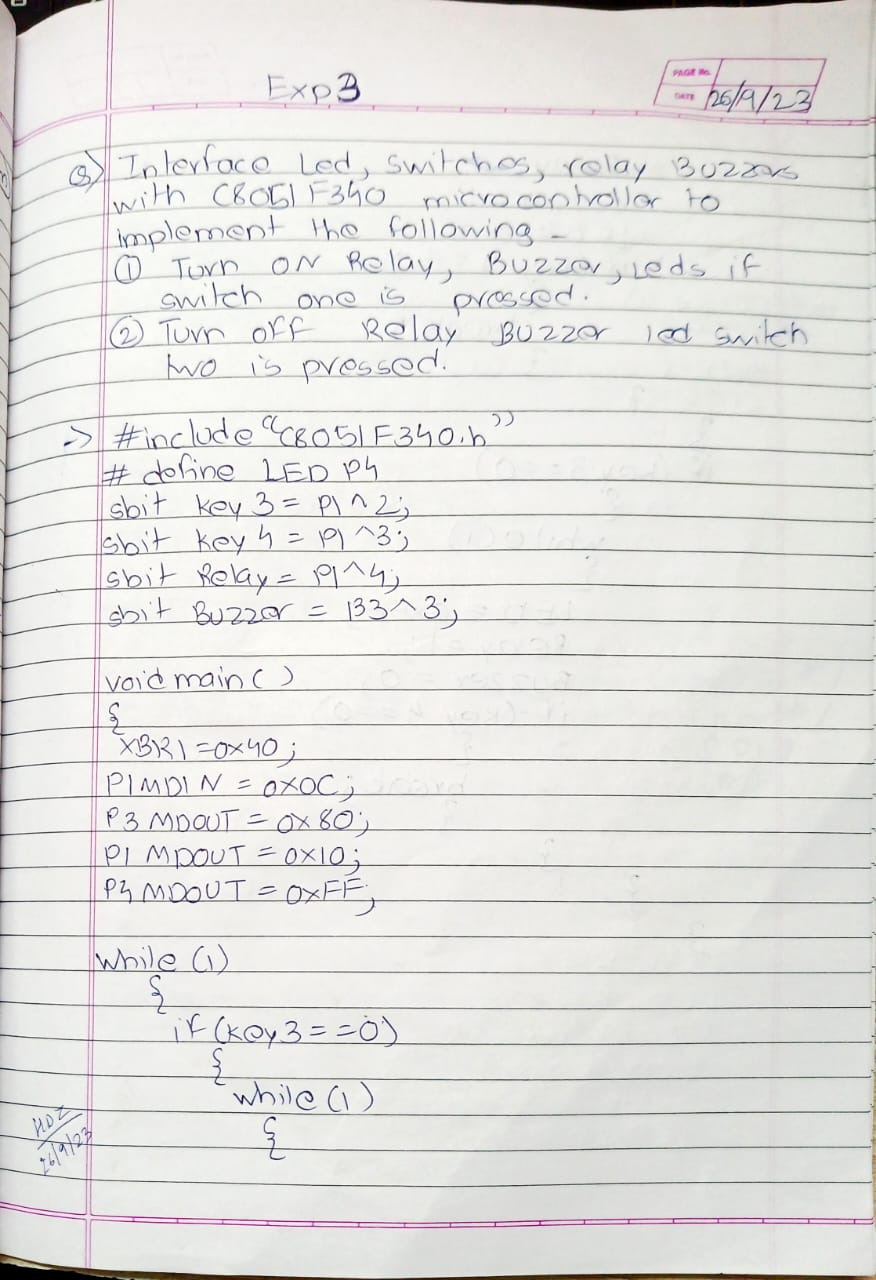 Exp 3
PAGE No.
DATE 26/9/23
Q) Interface Led, switches, relay Buzzers
with C8051F340 microcontroller to
implement the following -
① Turn ON Relay, Buzzer, Leds if
switch one is pressed.
② Turn off Relay Buzzer led switch
two is pressed.
-> #include "C8051F340.h"
# define LED P4
sbit key 3 = P1^2;
sbit key 4 = P1^3;
sbit Relay = P1^4;
sbit Buzzer = P3^3;
void main ( )
{
XBR1 = 0x40;
P1MDIN = 0x0C;
P3 MDOUT = 0x80;
P1 MDOUT = 0x10;
P4 MDOUT = 0xFF;
while (1)
{
if (key3 == 0)
{
while (1)
{
26/9/23